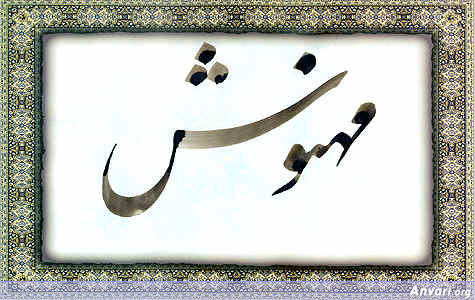 مهوش
Anvari.org